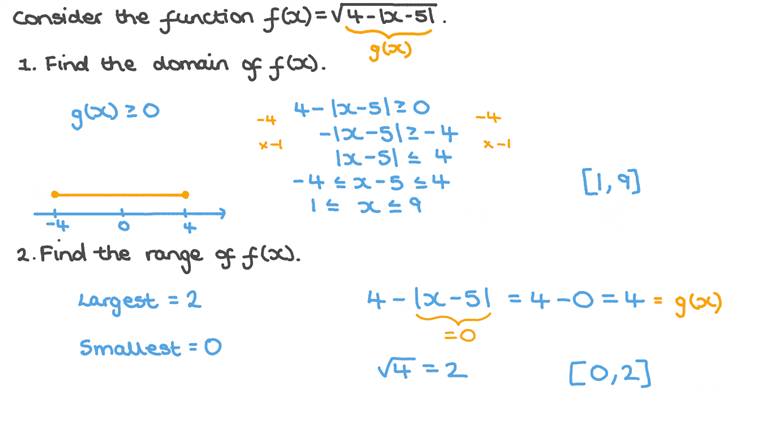 Consider the function f(x) = √4-|x-5|.
g(x)
1. Find the domain of f(x).
g(x) ≥ 0
-4 4-|x-5| ≥ 0 -4
x-1 -|x-5| ≥ -4 x-1
|x-5| ≤ 4
-4 ≤ x-5 ≤ 4 [1, 9]
1 ≤ x ≤ 9
-4 0 4
2. Find the range of f(x).
Largest = 2 4-|x-5| = 4-0 = 4 = g(x)
=0
Smallest = 0
√4 = 2 [0, 2]